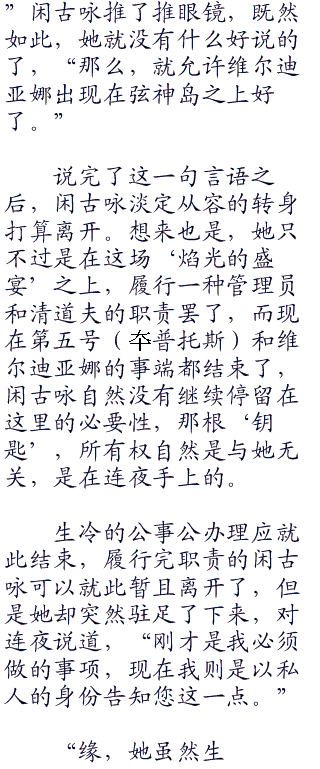 ”闲古咏推了推眼镜，既然
如此，她就没有什么好说的
了，“那么，就允许维尔迪
亚娜出现在弦神岛之上好
了。”
说完了这一句言语之
后，闲古咏淡定从容的转身
打算离开。想来也是，她只
不过是在这场‘焰光的盛
宴’之上，履行一种管理员
和清道夫的职责罢了，而现
在第五号（夲普托斯）和维
尔迪亚娜的事端都结束了，
闲古咏自然没有继续停留在
这里的必要性，那根‘钥
匙’，所有权自然是与她无
关，是在连夜手上的。
生冷的公事公办理应就
此结束，履行完职责的闲古
咏可以就此暂且离开了，但
是她却突然驻足了下来，对
连夜说道，“刚才是我必须
做的事项，现在我则是以私
人的身份告知您这一点。”
“缘，她虽然生